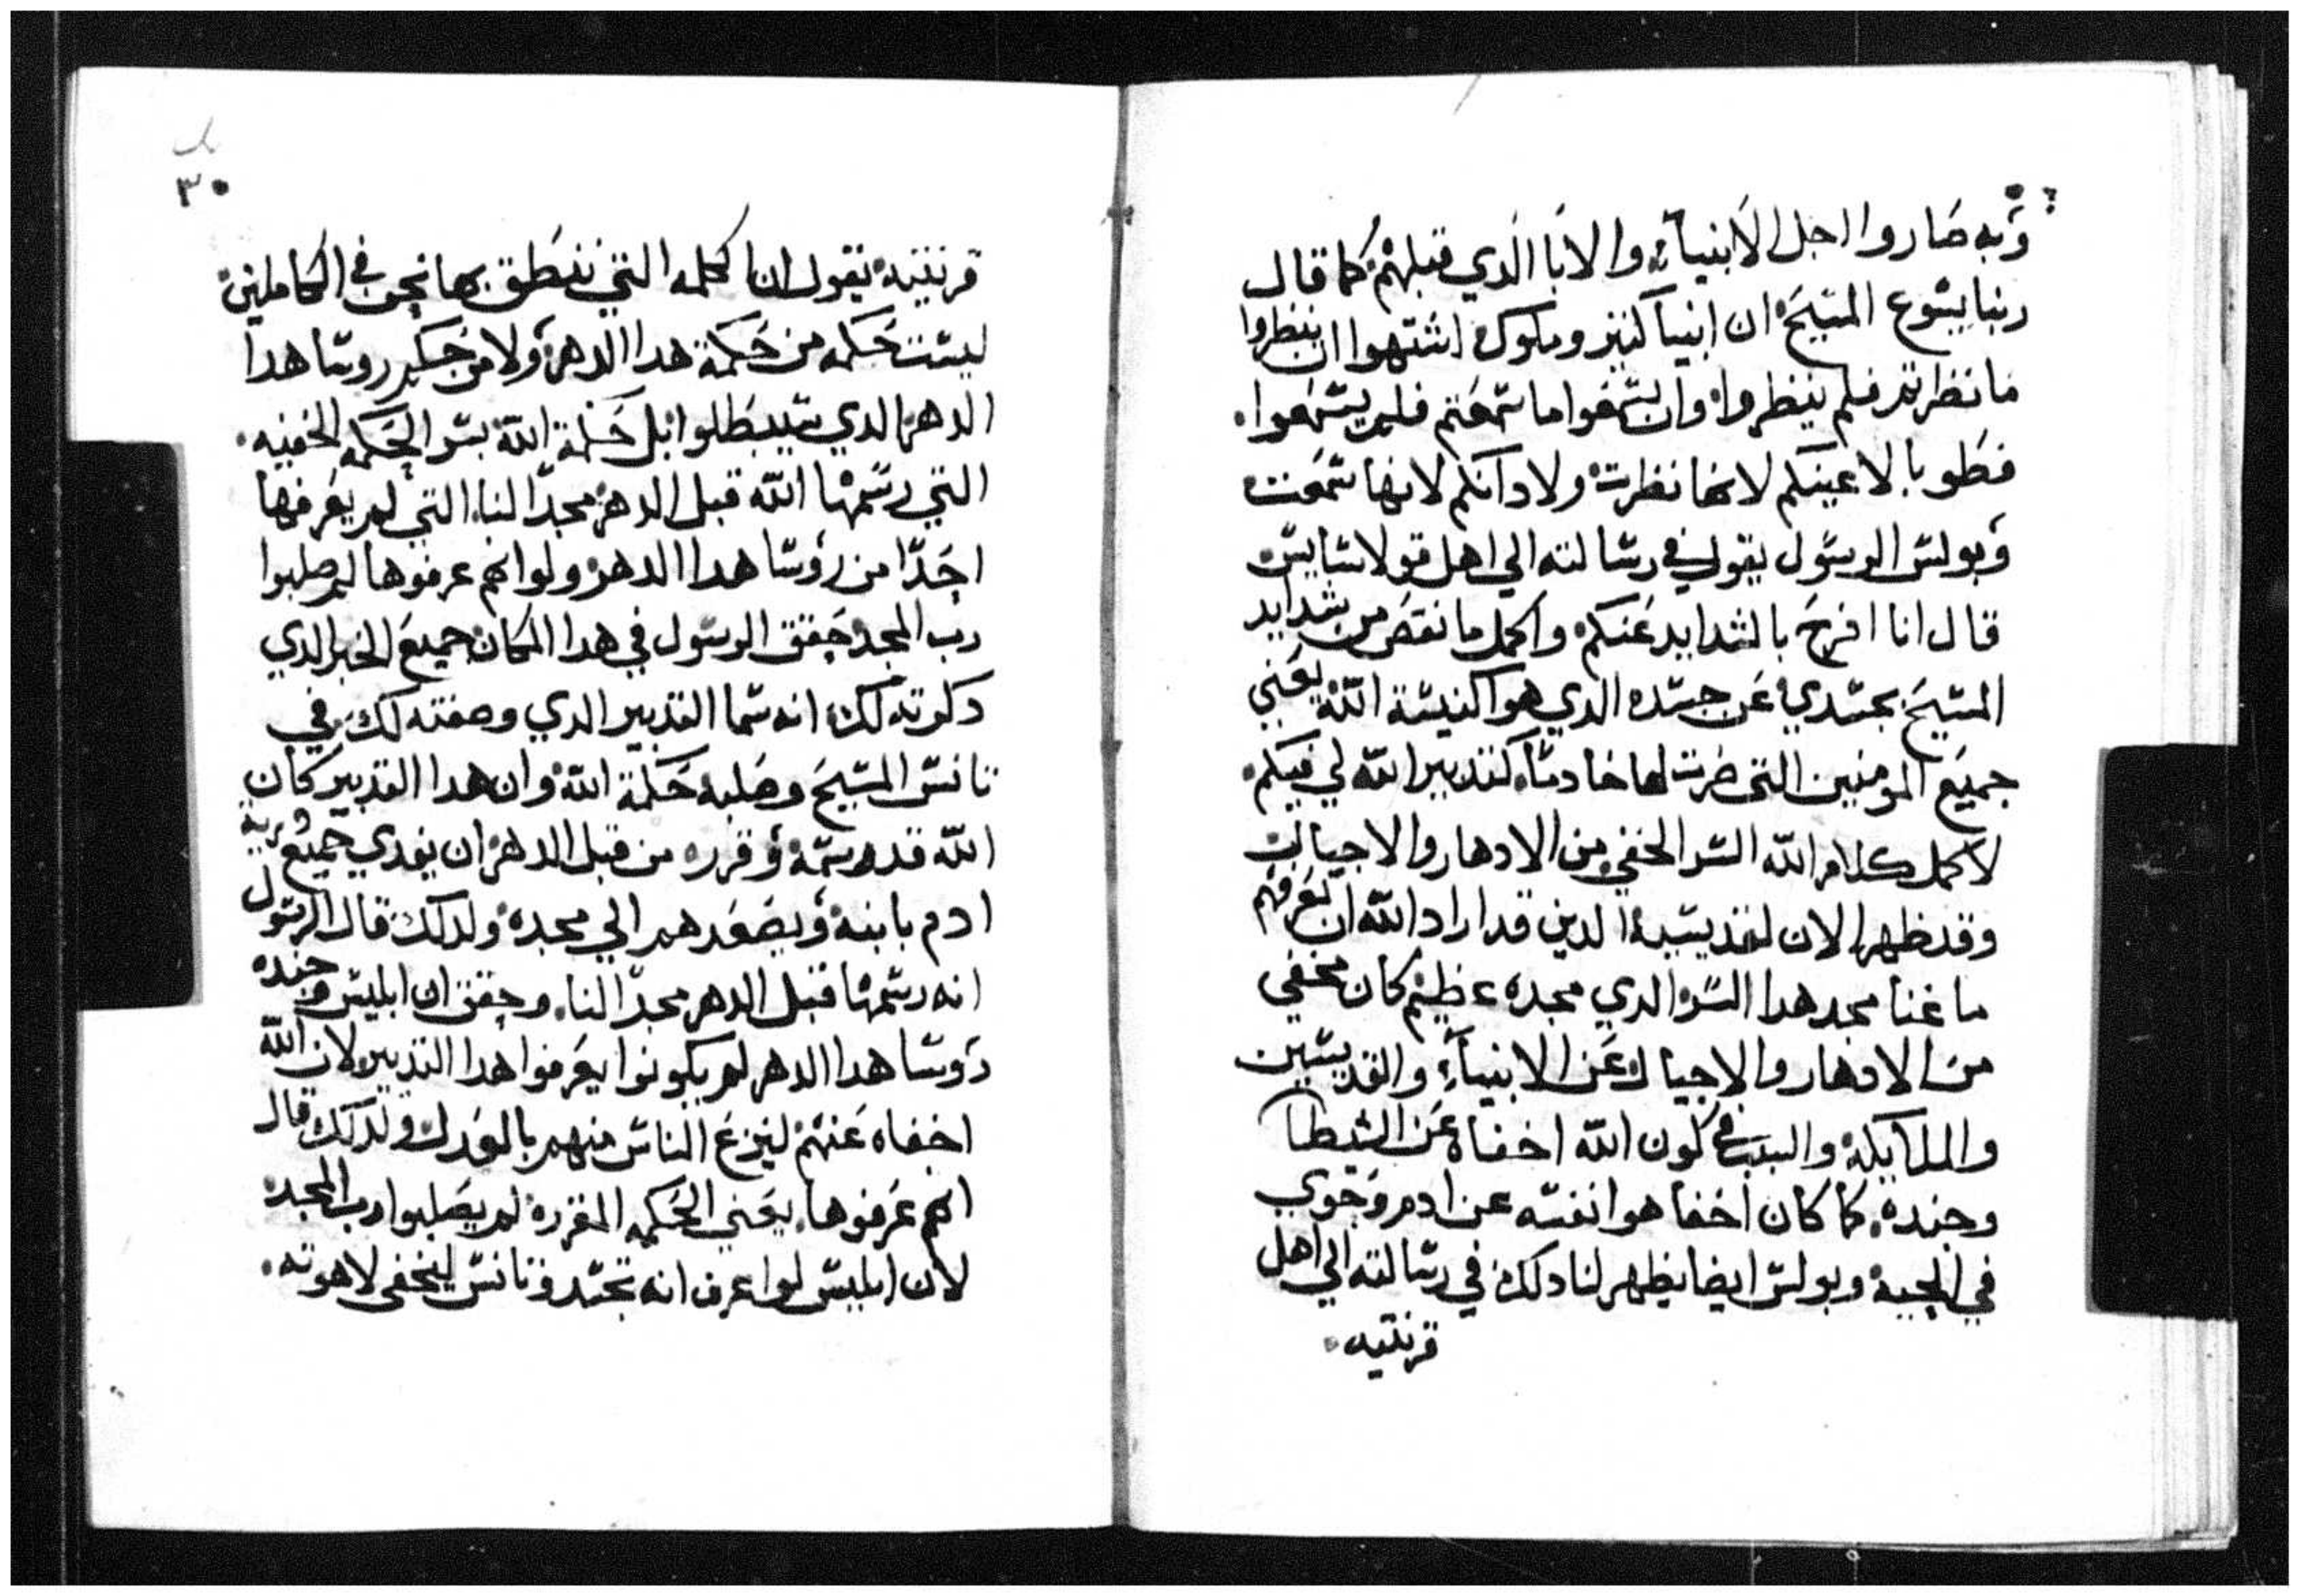 وبه صاروا اجل الانبيآء والابا الذي قبلهم كما قال
ربنا يسوع المسيح ان انبيآ كتير وملوك اشتهوا ان ينظروا
ما نظرتم فلم ينظروا وان يسمعوا ما سمعتم فلم يسمعوا.
فطوبا لاعينكم لانها نظرت ولادانكم لانها سمعت
وبولس الرسول يقول في رسالته الي اهل قولاسايس
قال انا افرح بالشدايد عنكم واكمل ما نقص من شدايد
المسيح بجسدي عن جسده الدي هو اكنيسة الله يعني
جميع المومنين التي صرت لها خادما كتدبير الله لي فيكم
لاكمل كلام الله السر الخفي من الادهار والاجيال
وقد ظهر الان لقديسيه الدين قد اراد الله ان يعرفهم
ما غنا مجد هدا السر الدي مجده عظيم كان مخفي
من الادهار والاجيال وعن الانبيآء والقديسين
والملايكة والسبب في كون الله اخفاه عن الشيطا
وجنده. كما كان اخفا هوا نفسه عن ادم وحوي
في الحية وبولس ايضا يظهر لنا دلك في رسالته الي اهل
قرنتيه.
٣٠
قرنتيه يقول ان اكلمه التي ننطق بها نحن في الكاملين
ليست حكمه من حكمة هدا الدهر ولا من حكم روسا هدا
الدهر الدي سيبطلوا بل حكمة الله بسر الحكمه الخفيه.
التي رسمها الله قبل الدهر مجدا لنا. التي لم يعرفها
احدا من رؤسا هدا الدهر ولو انهم عرفوها لم صلبوا
رب المجد حقق الرسول في هدا المكان جميع الخبر الدي
دكرته لك انه سما التدبير الدي وصفته لك في
تانس المسيح وصلبه حكمة الله وان هدا التدبير كان
الله قد رسمه وقرره من قبل الدهر ان يفدي جميع درية
ادم بابنه ويصعدهم الي مجده ولدلك قال الرسول
انه رسمها قبل الدهر مجدا لنا. وحقق ان ابليس وجنده
رؤسا هدا الدهر لم يكونوا يعرفوا هدا التدبير لان الله
اخفاه عنهم لينزع الناس منهم بالعدل ولدلك قال
انهم عرفوها. يعني الحكمه المقرره لم يصلبوا رب المجد
لان ابليس لوا عرف انه تجسد وتانس ليخفي لاهوته.